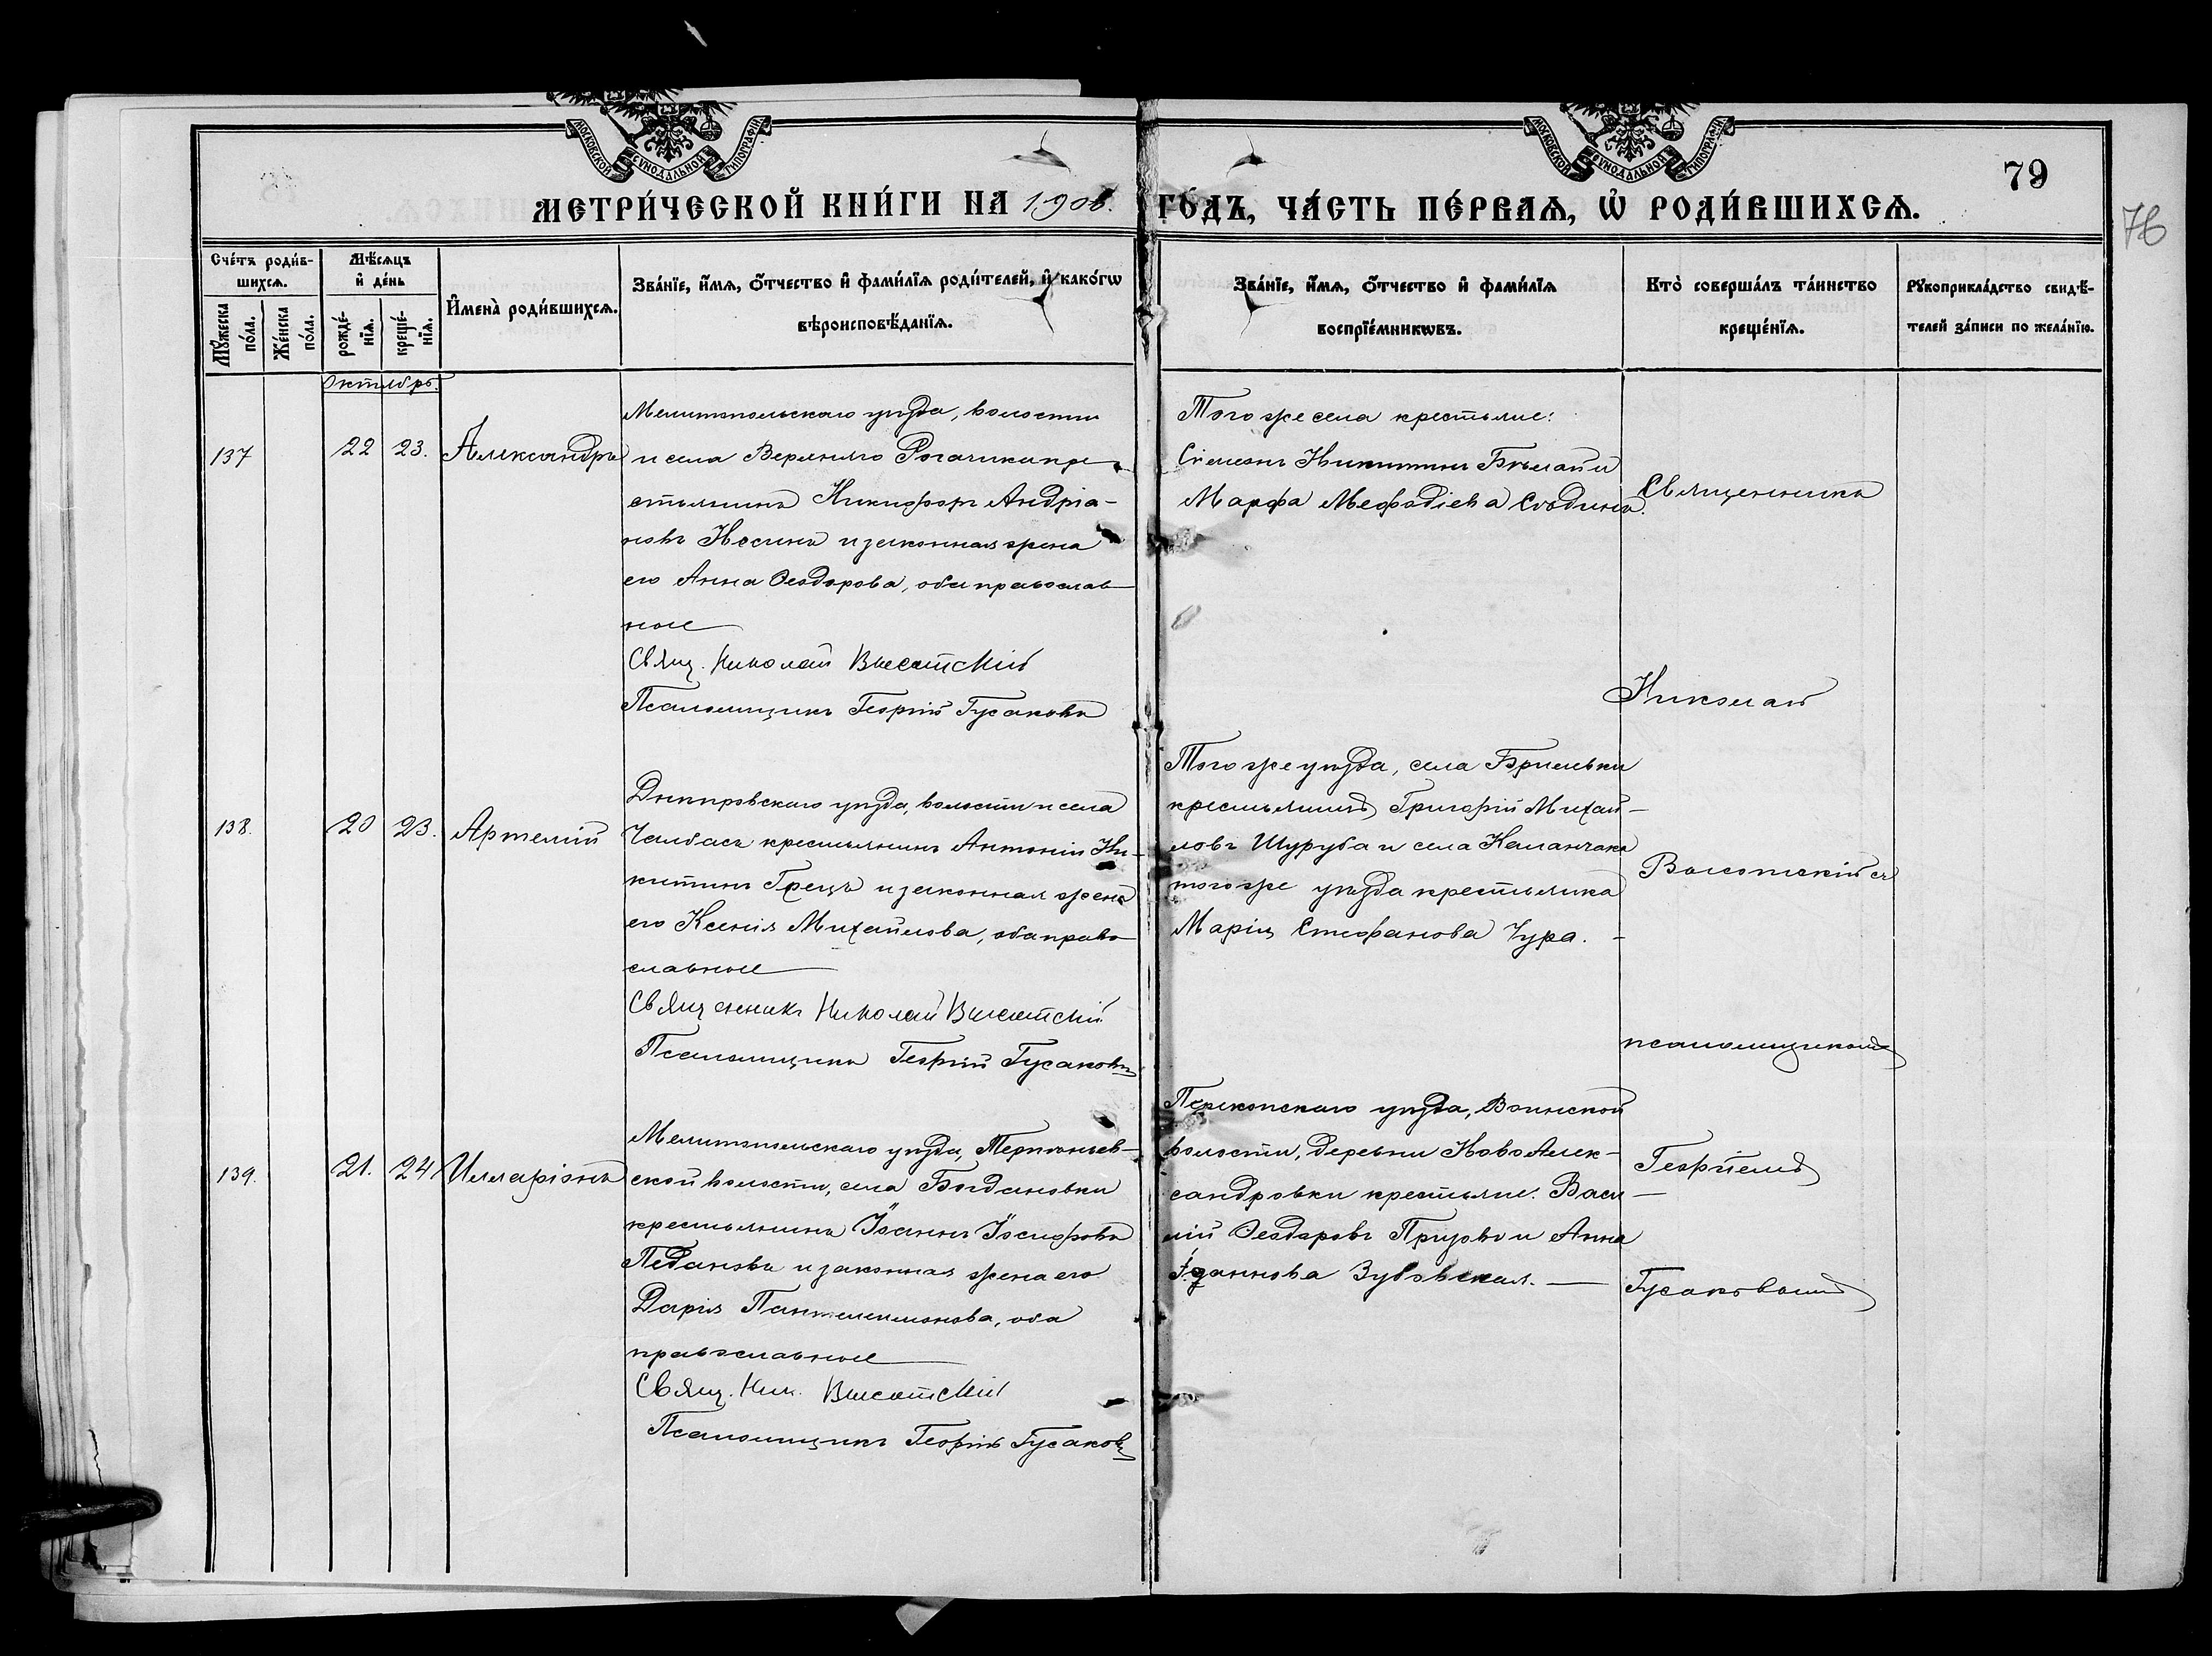 МОСКОВСКОЙ СѴНОДАЛЬНОЙ ТИПОГРАФІИ
МОСКОВСКОЙ СѴНОДАЛЬНОЙ ТИПОГРАФІИ
79
76
МЕТРИ́ЧЕСКОЙ КНИ́ГИ НА 1906. ГО́ДЪ, ЧА́СТЬ ПЕ́РВАѦ, Ѡ҆ РОДИ́ВШИХСѦ.
Сче́тъ роди́в-
шихсѧ.
Мѣ́сѧцъ
и҆ де́нь
И҆мена̀ роди́вшихсѧ.
Зва́нїе, и҆́мѧ, ѻ҆́тчество и҆ фами́лїѧ роди́телей, и҆ како́гѡ
вѣроисповѣ́данїѧ.
Зва́нїе, и҆́мѧ, ѻ҆́тчество и҆ фами́лїѧ
воспрїе́мникѡвъ.
Кто̀ соверша́лъ та́инство
креще́нїѧ.
Рꙋкоприкла́дство свидѣ́-
телей за́писи по жела́нїю.
Мꙋ́жеска
по́ла.
Же́нска
по́ла.
рожде́-
нїѧ.
креще́-
нїѧ.
Октябрь.
137 22 23. Александръ
Мелитопольскаго уѣзда, волости
и села Верхняго Рогачика кре-
стьянинъ Никифоръ Андріа-
новъ Носинъ и законная жена
его Анна Ѳеодорова, оба православ-
ные
Свящ. Николай Высотскій
Псаломщикъ Георгій Гусаковъ
Того же села крестьяне:
Симеонъ Никитинъ Бѣлай и
Марфа Мефодіева
Священникъ
Николай
138. 20 23. Артемій
Днѣпровскаго уѣзда, волости и села
Чалбасъ крестьянинъ Антоній Ни-
китинъ Грецъ и законная жена
его Ксенія Михайлова, оба право-
славные
Священникъ Николай Высотскій
Псаломщикъ Георгій Гусаковъ
Того же уѣзда, села Брилевки
крестьянинъ Григорій Михай-
ловъ Шуруба и села Каланчака
того же уѣзда крестьянка
Марія Стефанова Чура.
Высотскій съ
псаломщикомъ
139. 21. 24 Илларіонъ
Мелитопольскаго уѣзда, Терпѣньев-
ской волости, села Богдановки
крестьянинъ Іоаннъ Іосифовъ
Педановъ и законная жена его
Дарія Пантелеимонова, оба
православные
Свящ. Ник. Высотскій
Псаломщикъ Георгій Гусаковъ
Перекопскаго уѣзда, Воинской
волости, деревни Ново Алек-
сандровки крестьяне: Васи-
лій Ѳеодоровъ Призовъ и Анна
Іоаннова Зубовская.
Георгіемъ
Гусаковымъ